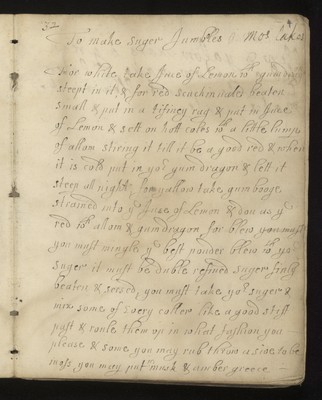 32
To make Suger Jumbles Mos Cakes
For white take Juce of Lemon wth gumdragon
steept in it, & for red scuchinniles beaten
small & put in a tifiney rag & put in Juce
of Lemon & sett on hott coles wth a little lump
of allam stiring it till it be a good red & when
it is cold put in yor gum dragon & lett it
steep all night, for yallow take gum booge
strained into ye Juse of Lemon & doe as ye
red wth allam & gumdragon for blew
you must mingle ye best pouder blew wth yor
suger it must be duble refined suger finly
beaten & sersed, you must take yor suger &
mix some of every coller like a good stiff
past & roule them up in what fashion you
please & some you may rub throw a sive to be
moss you may put in musk & amber greece